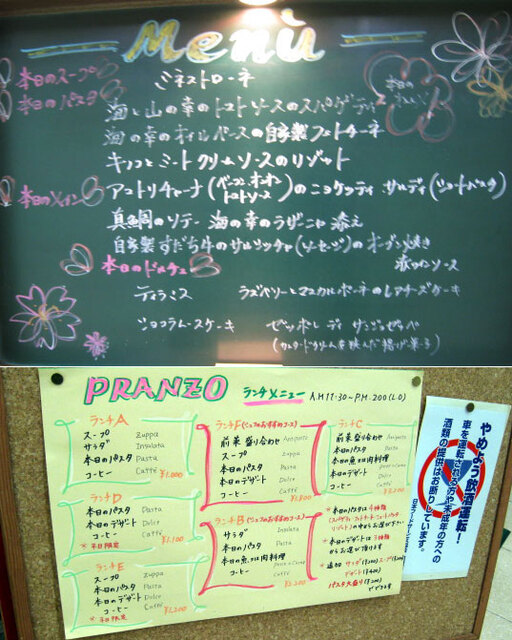 Menù
本日のスープ ミネストローネ
本日のパスタ 海と山の幸のトマトソースのスパゲティ
海の幸のオイルベースの自家製フェトチーネ
キノコとミートクリームソースのリゾット
アマトリチャーナ(ベーコン、オニオン トマトソース)のニョケッティ サルディ(ショートパスタ)
本日のメイン 真鯛のソテー 海の幸のラザーニャ 添え
自家製すだち牛のサルシッチャ(ソーセージ)のオーブン焼き
赤ワインソース
本日のドルチェ
ティラミス ラズベリーとマスカルポーネのレアチーズケーキ
ショコラムースケーキ ゼッポレ ディ サンジュゼッペ
(カスタードクリームを挟んだ揚げ菓子)
PRANZO ランチメニュー AM11:30~P.M.2:00(L.O)
ランチA
スープ Zuppa
サラダ Insalata
本日のパスタ Pasta
コーヒー Caffè
¥1,000
ランチD
本日のパスタ Pasta
本日のデザート Dolce
コーヒー Caffè
※平日限定
ランチE
スープ Zuppa
本日のパスタ Pasta
本日のデザート Dolce
コーヒー Caffè
※平日限定 ¥1,200
ランチF(シェフのおすすめコース)
前菜盛り合わせ Antipasto
本日のパスタ Pasta
本日のデザート Dolce
コーヒー Caffè
¥1,800
ランチB(シェフのおすすめコース)
サラダ Insalata
本日のパスタ Pasta
本日の魚又は肉料理
コーヒー Caffè
ランチC
前菜盛り合わせ Antipasto
本日のパスタ Pasta
本日の魚又は肉料理
本日のデザート Dolce
コーヒー Caffè
※本日のパスタは4種類
の中からお選び下さい
※本日のデザートは3種類
からお選び頂けます
やめよう飲酒運転!
車を運転される方や未成年の方への
酒類の提供はお断りしています。